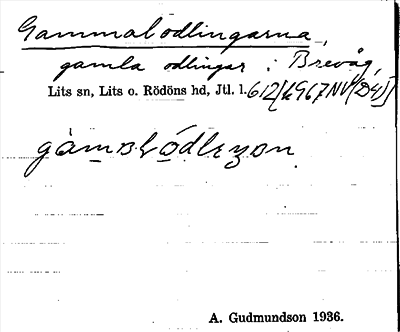 Gammalodlingarna,
gamla odlingar i Brevåg,
Lits sn, Lits o. Rödöns hd, Jtl. l. 612[1967NV(D4)]
A. Gudmundson 1936.